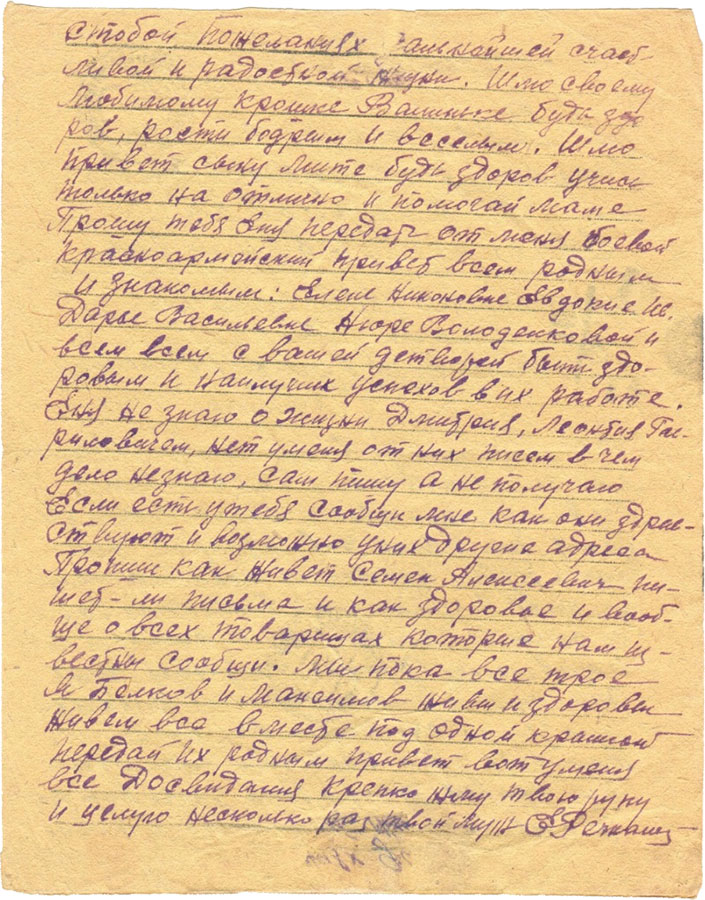 с тобой Пожеланиях дальнейшей счаст-
ливой и радостной жизни. Шлю своему
любимому крошке Валиньке будь здо
ров, рости бодрым и веселым. Шлю
привет сыну Мите будь здоров учись
только на отлично и помогай маме
Прошу тебя Еня передать от меня боевой
красноармейский привет всем родным
и знакомым: Елене Никоновне Евдокие Ив.
Дарье Василевне Нюре Володенковой и
всем всем с вашей детворой быть здо-
ровым и наилучих успехов в их работе.
Еня не знаю о жизни Дмитрия, Леонтия Гав-
риловичем, нет у меня от них писем в чем
дело незнаю, сам пишу а не получаю
Если есть у тебя сообщи мне как они здрав-
ствуют и возможно у них другие адреса
Пропиши как живет Семен Алексеевич пи-
шет-ли письма и как здоровье и вооб-
ще о всех товарищах которые нам из-
вестны сообщи. Мы пока все трое
Я Белков и Максимов живы и здоровы
живем все вместе под одной крышой
передай их родным привет вот у меня
все Досвидания Крепко жму твою руку
и целую несколько раз твой муж Е.